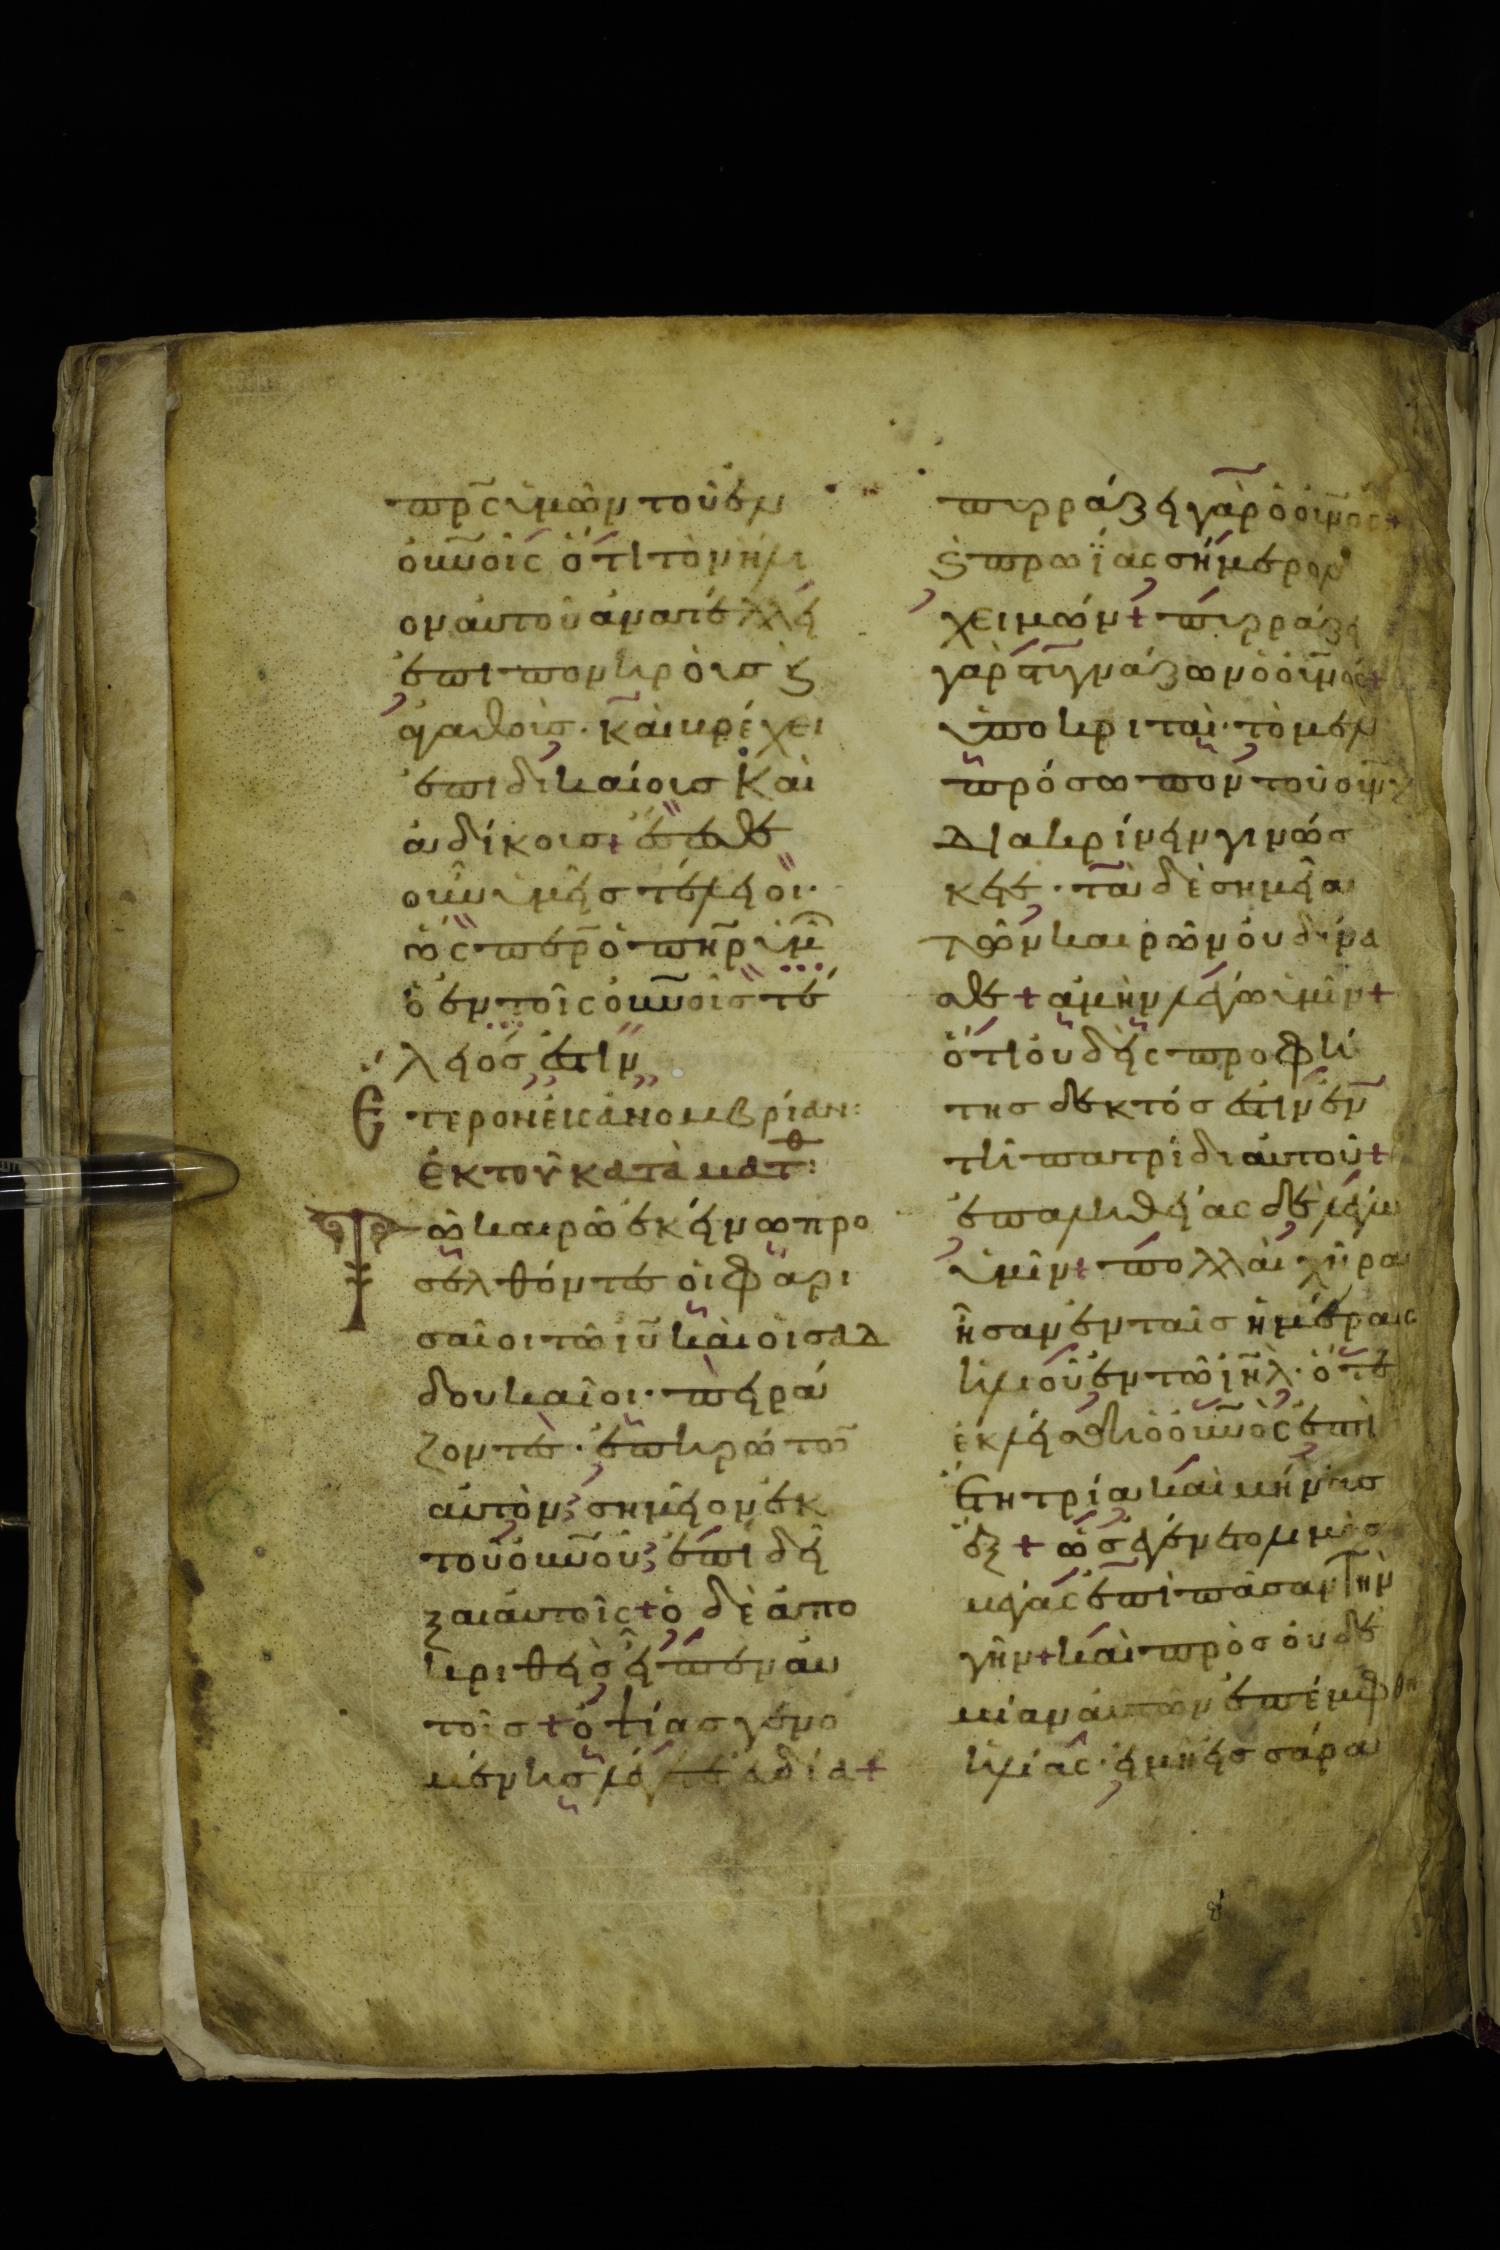 πρς ὑμῶν τοῦ ἐν
οὐνοῖς ὅτι τὸν ἥλι
ον αὐτοῦ ἀνατέλλει
ἐπι πονηροὺς ϗ
ἀγαθοὺς· καὶ βρέχει
ἐπι δικαίους καὶ
ἀδίκους + ἔσεσθε
οὖν ὑμεῖς τέλειοι·
ὥσπερ ὁ πηρ ὑμῶ
ὁ ἐν τοῖς οὐνοῖς τέ
λειός ἐστιν
Ετερον ἐις ἀνομβρίαν:
ἐκ τοῦ κατὰ ματθ:
Τῶ καιρῶ ἐκείνω προ
σελθόντες οἱ φαρι
σαῖοι τῶ ιυ καὶ οἱ σαδ
δουκαῖοι· πειρά
ζοντες· ἐπηρώτου
αὐτὸν σημεῖον ἐκ
τοῦ οὐνοῦ ἐπιδεῖ
ξαι αὐτοῖς + ὁ δὲ ἀπο
κριθεὶς εἶπεν αὐ
τοῖς + ὀψίας γενο
μένης λέγετε εὐδία +
πυρράζει γὰρ ὁ οὐνος +
ϗ πρωΐας σήμερον
χειμών + πυρράζει
γὰρ στυγνάζων ὁ οὐνός +
ὑποκριταὶ· τὸ μὲν
πρόσωπον τοῦ οὐνοῦ
διακρίνειν γινώσ
κετε· τὰ δὲ σημεῖα
τῶν καιρῶν οὐ δύνα
σθε + ἀμὴν λέγω ὑμῖν +
ὅτι οὐδεὶς προφή
της δεκτός ἐστιν ἐν
τῆ πατρίδι αὐτοῦ +
ἐπ αληθείας δὲ λέγω
ὑμῖν + πολλαὶ χῆραι
ἦσαν ἐν ταῖς ἡμέραις
ἡλιοὺ ἐν τῶ ιηλ· ὅτε
ἐκλείσθη ὁ οὐνὸς ἐπὶ
ἔτη τρία καὶ μῆνας
ἕξ + ὡς ἐγένετο λιμὸς
μέγας ἐπὶ πᾶσαν τὴν
γῆν + καὶ πρὸς οὐδε
μίαν αὐτῶν ἐπέμφθη
ἡλίας· εἰ μὴ εἰς σάρα